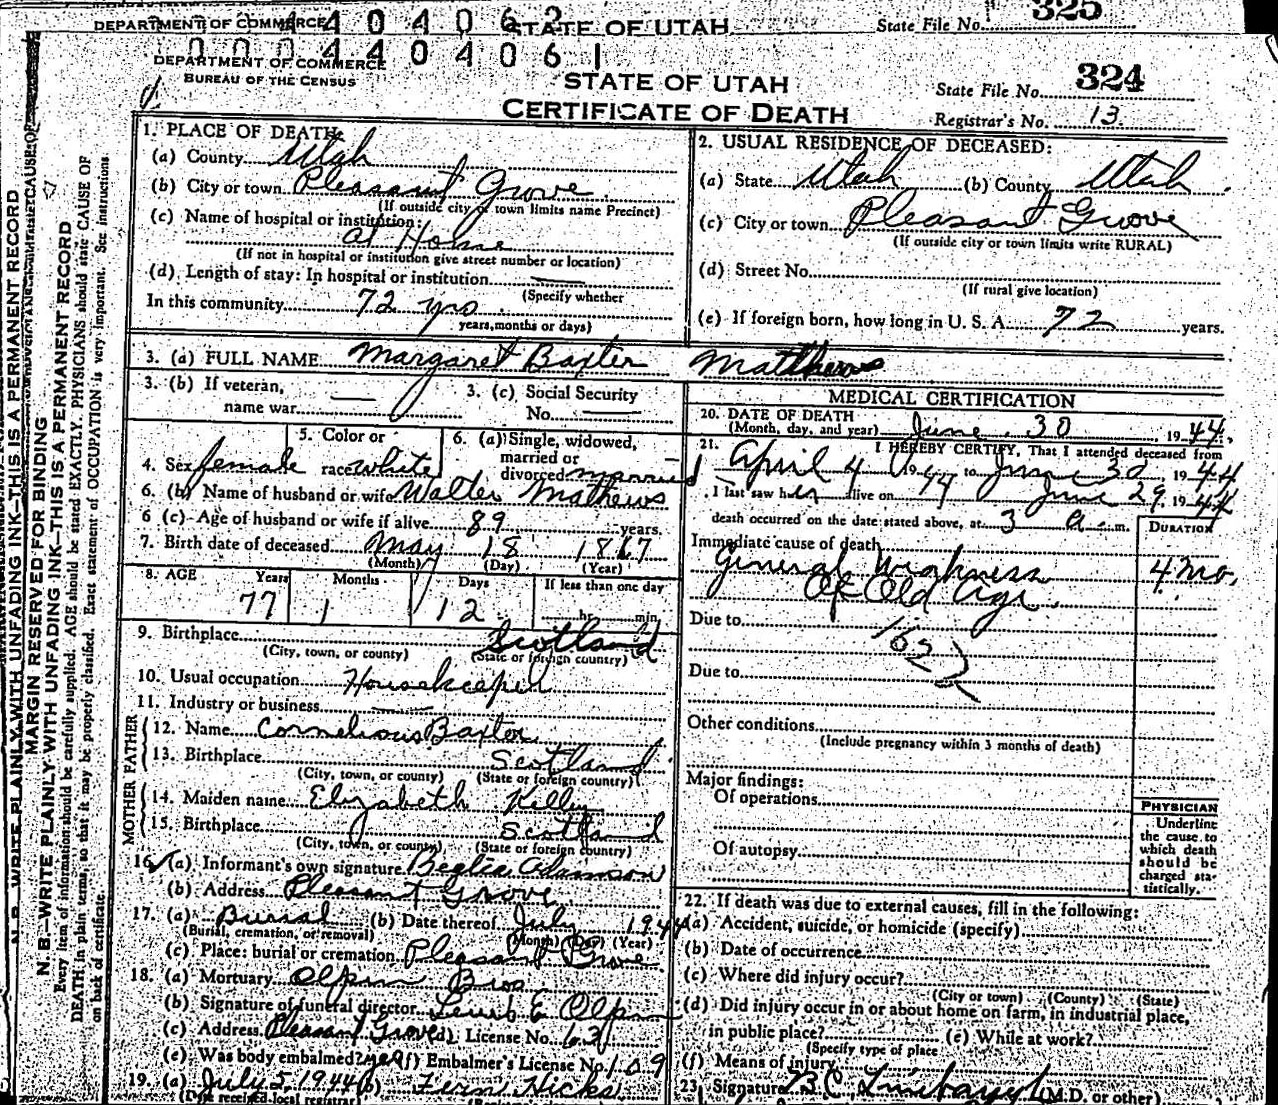 DEPARTMENT OF COMMERCE 4 4 0 4 0 6 2 STATE OF UTAH State File No. 325
0 0 0 4 4 0 4 0 6 1
DEPARTMENT OF COMMERCE
BUREAU OF THE CENSUS
STATE OF UTAH
CERTIFICATE OF DEATH
State File No. 324
Registrar's No. 13.
1. PLACE OF DEATH:
(a) County Utah
(b) City or town Pleasant Grove
(If outside city or town limits name Precinct)
(c) Name of hospital or institution:
at Home
(If not in hospital or institution give street number or location)
(d) Length of stay: In hospital or institution
(Specify whether
In this community 72 yrs
years, months or days)
2. USUAL RESIDENCE OF DECEASED:
(a) State Utah (b) County Utah
(c) City or town Pleasant Grove
(If outside city or town limits write RURAL)
(d) Street No.
(If rural give location)
(e) If foreign born, how long in U. S. A. 72 years.
3. (a) FULL NAME Margaret Baxter Matthews
3. (b) If veteran,
name war
3. (c) Social Security
No.
4. Sex female
5. Color or
race white
6. (a) Single, widowed,
married or
divorced married
6. (b) Name of husband or wife Walter Mathews
6 (c) Age of husband or wife if alive 89 years.
7. Birth date of deceased May 18 1867
(Month) (Day) (Year)
8. AGE Years Months Days If less than one day
77 1 12 hr. min.
9. Birthplace Scotland
(City, town, or county) (State or foreign country)
10. Usual occupation Housekeeper
11. Industry or business
FATHER
12. Name Cornelious Baxter
13. Birthplace Scotland
(City, town, or county) (State or foreign country)
MOTHER
14. Maiden name Elizabeth Kelley
15. Birthplace Scotland
(City, town, or county) (State or foreign country)
16. (a) Informant's own signature Adamson
(b) Address Pleasant Grove
17. (a) Burial (b) Date thereof July 1944
(Burial, cremation, or removal) (Month) (Day) (Year)
(c) Place: burial or cremation Pleasant Grove
18. (a) Mortuary Olpin Bros.
(b) Signature of funeral director E Olpin
(c) Address Pleasant Grove (d) License No. 63
(e) Was body embalmed? yes (f) Embalmer's License No. 109
19. (a) July 5, 1944 (b) Fern Hicks
(Date received local registrar)
MEDICAL CERTIFICATION
20. DATE OF DEATH
(Month, day, and year) June 30 1944.
21. I HEREBY CERTIFY, That I attended deceased from
April 4 1944 to June 30 1944
I last saw her alive on June 29 1944
death occurred on the date stated above, at 3 a.m.
DURATION
Immediate cause of death
General Weakness 4 mo.
of Old Age.
Due to
162
Due to
Other conditions
(Include pregnancy within 3 months of death)
Major findings:
Of operations
Of autopsy
PHYSICIAN
Underline
the cause to
which death
should be
charged sta-
tistically.
22. If death was due to external causes, fill in the following:
(a) Accident, suicide, or homicide (specify)
(b) Date of occurrence
(c) Where did injury occur?
(City or town) (County) (State)
(d) Did injury occur in or about home on farm, in industrial place,
in public place? (e) While at work?
(Specify type of place
(f) Means of injury
23. Signature (M.D. or other)
N. B.—WRITE PLAINLY WITH UNFADING INK—THIS IS A PERMANENT RECORD
MARGIN RESERVED FOR BINDING
N. B.—WRITE PLAINLY WITH UNFADING INK—THIS IS A PERMANENT RECORD
Every item of information should be carefully supplied. AGE should be stated EXACTLY. PHYSICIANS should state CAUSE OF
DEATH in plain terms, so that it may be properly classified. Exact statement of OCCUPATION is very important. See instructions
on back of certificate